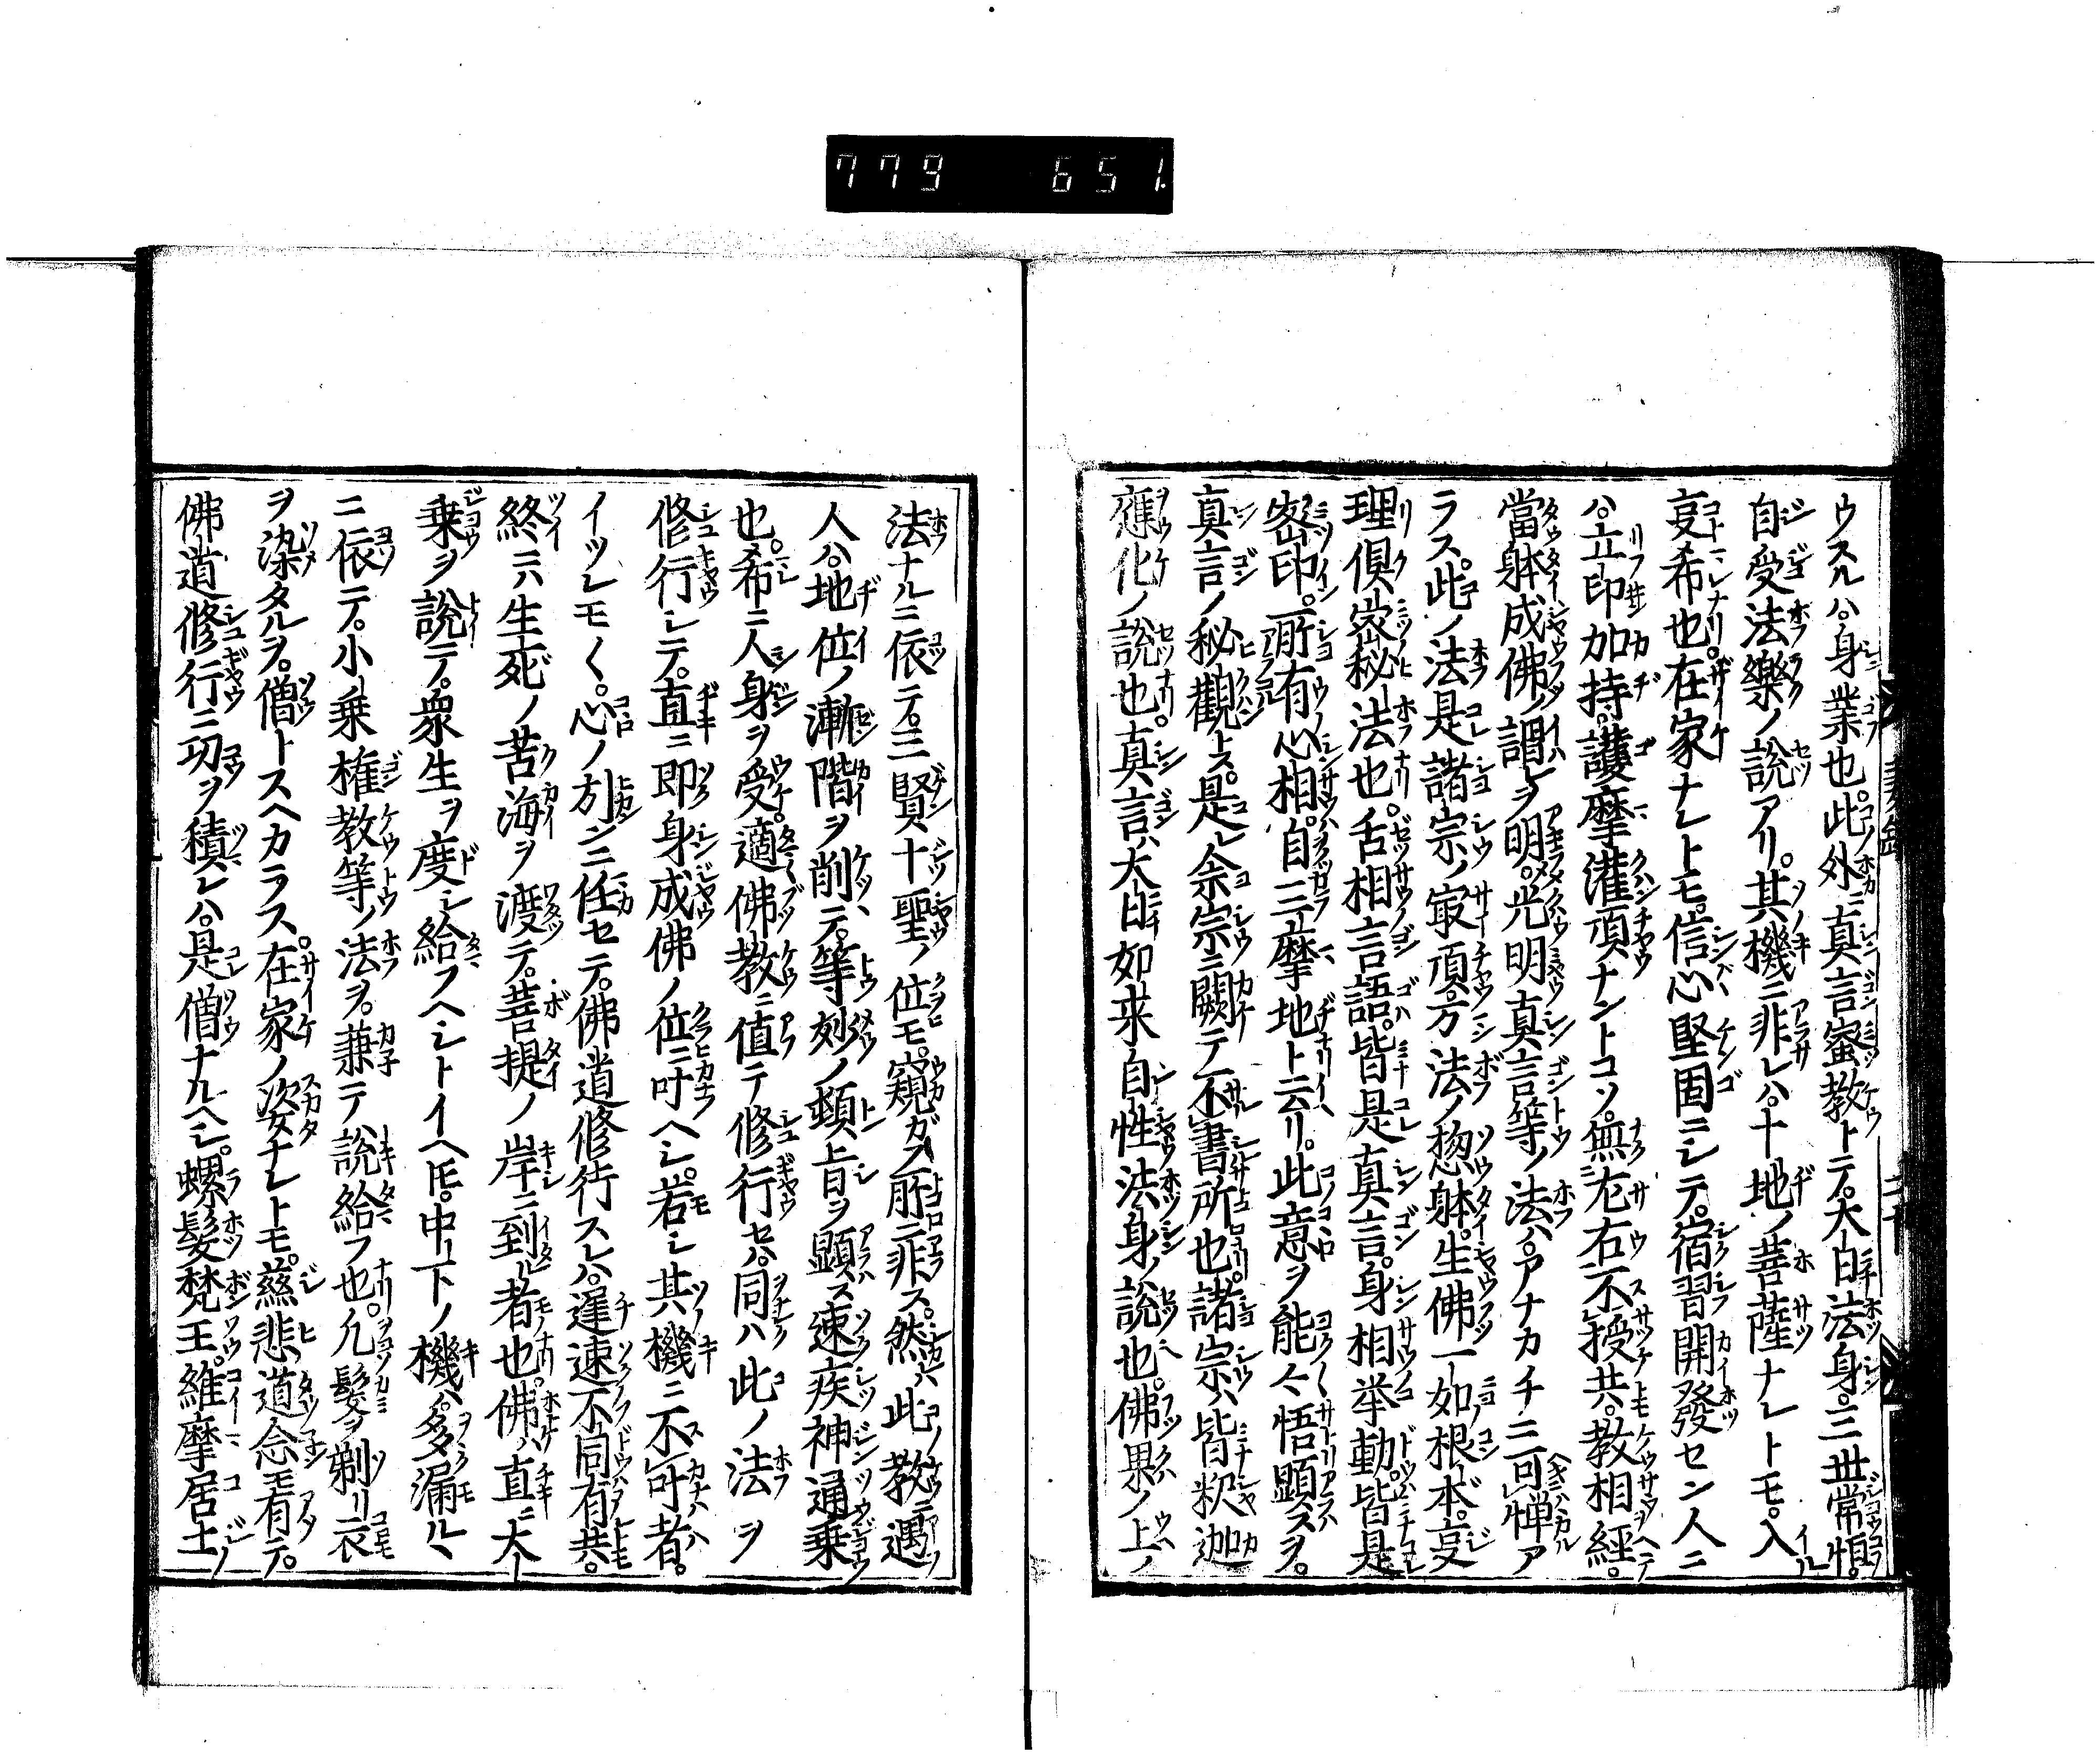 779 651.
ウスルハ。身業也。此外ニ真言蜜教トテ。大日法身。三世常恒。
自受法樂ノ説アリ。其機ニ非レハ。十地ノ菩薩ナレトモ。入
叓希也。在家ナレトモ。信心堅固ニシテ。宿習開發セン人ニ
ハ。立印加持。護摩灌頂ナントコソ。無左右不授共。教相經。
當躰成佛ノ謂レヲ明。光明真言等ノ法ハ。アナカチニ可憚ア
ラス。此ノ法是諸宗ノ㝡頂。万法ノ惣躰。生佛一如根本。叓
理倶密秘法也。舌相言語。皆是真言。身相举動。皆是
密印。所有心相。自三摩地ト云リ。此意ヲ能々悟顕スヲ。
真言ノ秘觀トス。是レ余宗ニ闕テ不書所也。諸宗ハ皆釈迦
應化ノ説也。真言ハ大日如来自性法身ノ説也。佛果ノ上ノ
法ナルニ依テ。三賢十聖ノ位モ。窺カフ所ニ非ス。然ハ此教遇
人ハ。地位ノ漸階ヲ削テ。等妙ノ頓旨ヲ顕ス。速疾神通乗
也。希ニ人身ヲ受。適佛教ニ値テ修行セハ。同ハ此ノ法ヲ
修行シテ。直ニ即身成佛ノ位ニ叶ヘシ。若シ其機ニ不叶者。
イツレモ〱。心ノ引ンニ任セテ。佛道修行スレハ。遲速不同有共。
終ニハ生死ノ苦海ヲ渡テ。菩提ノ岸ニ到ル者也。佛ハ直ニ大
乗ヲ説テ。衆生ヲ度シ給フヘシトイヘ𪜈。中下ノ機ハ。多漏ルヽ
ニ依テ。小乗權教等ノ法ヲ。兼テ説給フ也。凡髪ヲ剃リ衣
ヲ染タルヲ。僧トスヘカラス。在家ノ姿ナレトモ。慈悲道念モ有テ。
佛道修行ニ功ヲ積レハ。是僧ナルヘシ。螺髪梵王。維摩居士ノ